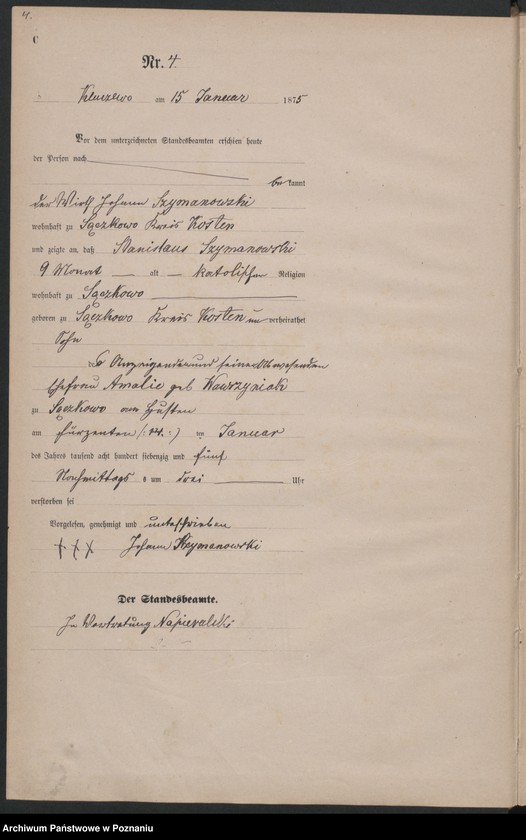 4.
C
Nr. 4.
Kluczewo am 15 Januar 1875
Vor dem unterzeichneten Standesbeamten erschien heute
der Person nach
bekannt
der Wirth Johann Szymanowski
wohnhaft zu Sączkowo Kreis Kosten
und zeigte an, daß Stanislaus Szymanowski
9 Monat alt katolischen Religion
wohnhaft zu Sączkowo
geboren zu Sączkowo Kreis Kosten un verheirathet
Sohn
Anzeigenden und seiner
Ehefrau Amalie geb Wawrzyniak
zu Sączkowo am Husten
am (:14.:) ten Januar
des Jahres tausend acht hundert siebenzig und fünf
Nachmittags um drei Uhr
verstorben sei
Vorgelesen, genehmigt und unterschrieben
+++ Johann Szymanowski
Der Standesbeamte.
In Vertretung
Archiwum Państwowe w Poznaniu